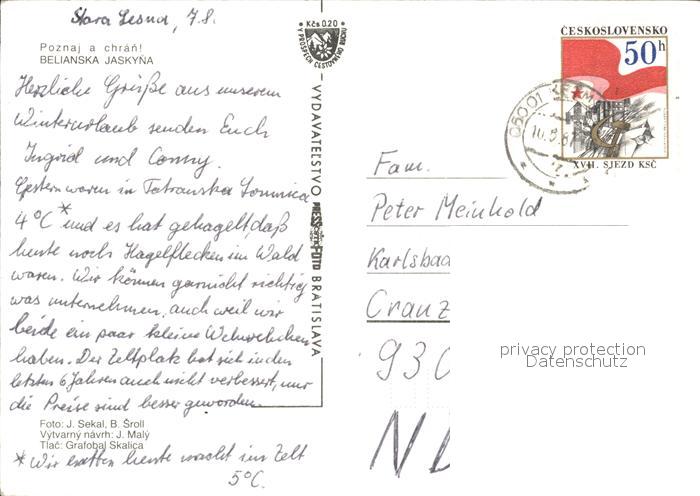 Stara Lesna, 7.8.
Poznaj a chráň!
BELIANSKA JASKYŇA
Herzliche Grüße aus unserem
Winterurlaub senden Euch
Ingrid und Conny.
Gestern waren in Tatranska Lomnica
4°C* und es hat gehagelt, daß
heute noch Hagelflecken im Wald
waren. Wir können garnicht richtig
was unternehmen, auch weil wir
beide ein paar kleine Wehwehchen
haben. Der Zeltplatz hat sich in den
letzten 6 Jahren auch nicht verbessert, nur
die Preise sind besser geworden.
Foto: J. Sekal, B. Šroll
Výtvarný návrh: J. Malý
Tlač: Grafobal Skalica
* Wir hatten heute nacht im Zelt
5°C.
Kčs 0.20
VYDAVATEĽSTVO PRESSFOTO BRATISLAVA
ČESKOSLOVENSKO
50h
XVII. SJEZD KSČ
05001
Fam.
Peter Meinhold
Karlsbad
Cranz
930
privacy protection
Datenschutz